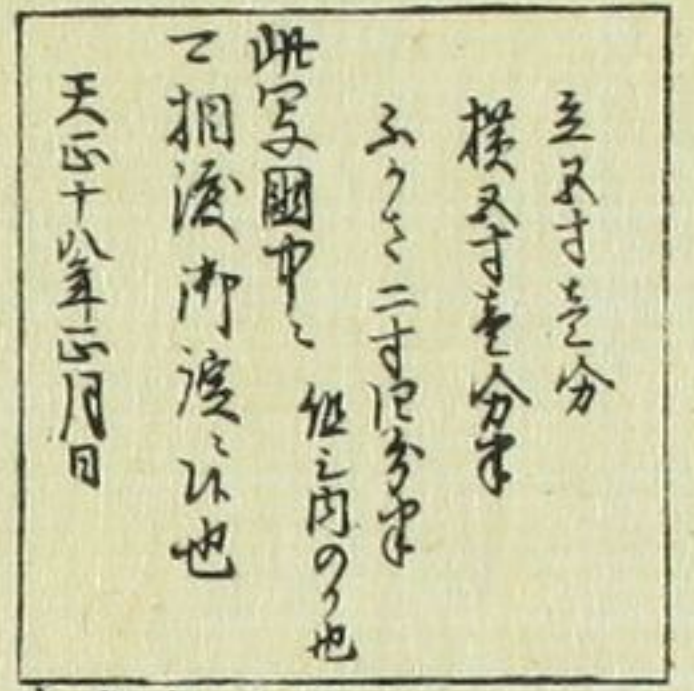 立五寸壱分
横五寸壱分半
ふかさ二寸四分半
但シ内のり也
此写國中ニ
可相渡御諚ニ候也
天正十八年正月日